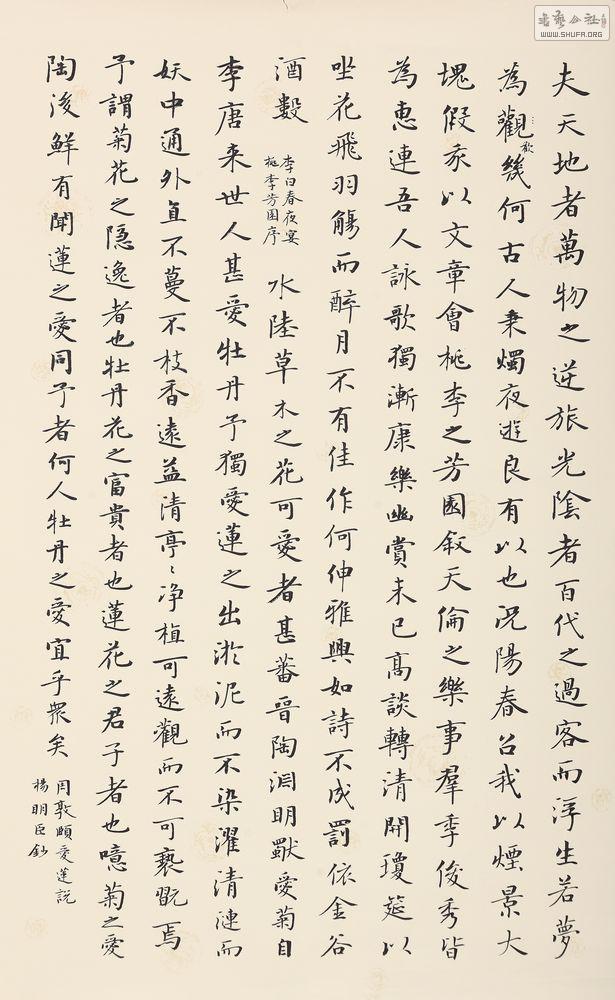 夫天地者萬物之逆旅光陰者百代之過客而浮生若夢
為觀歡幾何古人秉燭夜遊良有以也況陽春召我以煙景大
塊假我以文章會桃李之芳園叙天倫之樂事羣季俊秀皆
為惠連吾人詠歌獨漸康樂幽賞未已高談轉清開瓊筵以
坐花飛羽觴而醉月不有佳作何伸雅興如詩不成罰依金谷
酒數
李白春夜宴
桃李芳園序
水陸草木之花可愛者甚蕃晉陶淵明獸愛菊自
李唐来世人甚愛牡丹予獨愛蓮之出淤泥而不染濯清漣而
妖中通外直不蔓不枝香遠益清亭〻净植可遠觀而不可褻翫焉
予謂菊花之隐逸者也牡丹花之富貴者也蓮花之君子者也噫菊之愛
陶後鮮有聞蓮之愛同予者何人牡丹之愛宜乎衆矣
周敦頤愛蓮説
楊明臣鈔
書藝公社
WWW.SHUFA.ORG